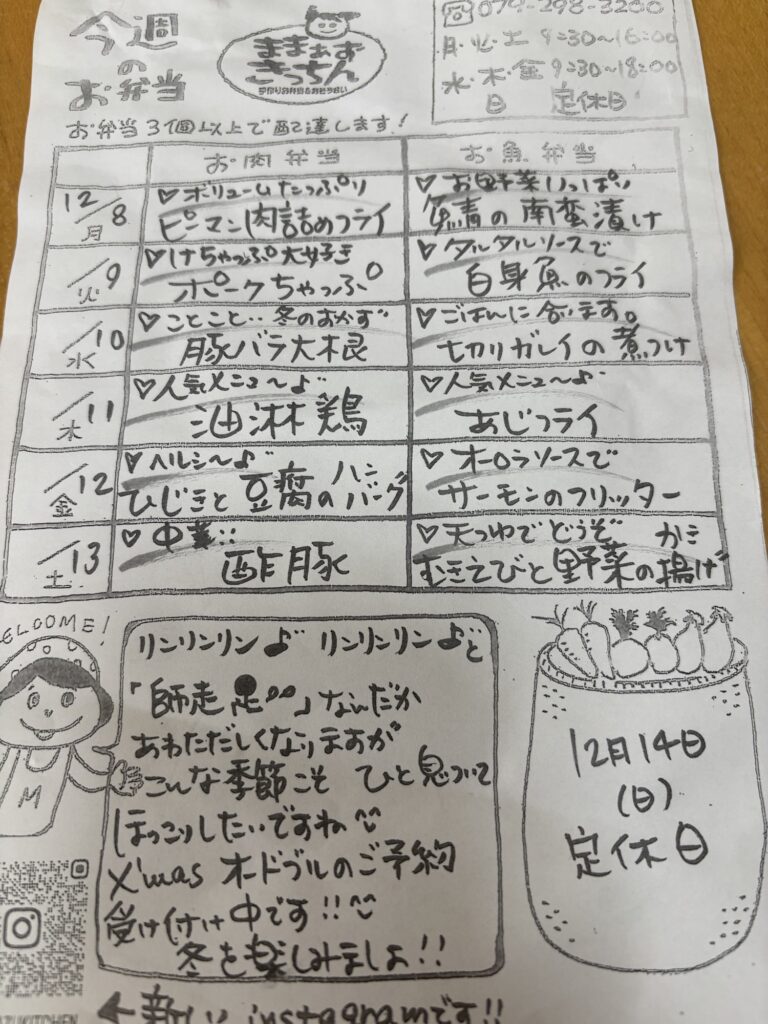 今週
の
お弁当
ままぁず
きっちん
☎079-298-3200
月・火・土 9:30~16:00
水・木・金 9:30~18:00
日 定休日
お弁当3個以上で配達します!
お肉弁当 お魚弁当
12/8 月
♡ボリュームたっぷり
ピーマン肉詰めフライ
♡お野菜いっぱい
鯖の南蛮漬け
/9 火
♡けちゃっぷ大好き
ポークちゃっぷ
♡タルタルソースで
白身魚のフライ
/10 水
♡ことこと‥冬のおかず
豚バラ大根
♡ごはんに合います。
切りガレイの煮つけ
/11 木
♡人気メニュ〜♪
油淋鶏
♡人気メニュ〜♪
あじフライ
/12 金
♡ヘルシ〜♪
ひじきと豆腐のハンバーグ
♡オーロラソースで
サーモンのフリッター
/13 土
♡中華::
酢豚
♡天つゆでどうぞ
むきえびと野菜のかき揚げ
WELCOME!
M
リンリンリン♪ リンリンリン♪と
「師走」なんだか
あわただしくなりますが
こんな季節こそ ひと息ついて
ほっこりしたいですね
X'mas オードブルのご予約
受け付け中です!!
冬を楽しみましょ!!
12月14日
(日)
定休日
←新しいinstagramです!!